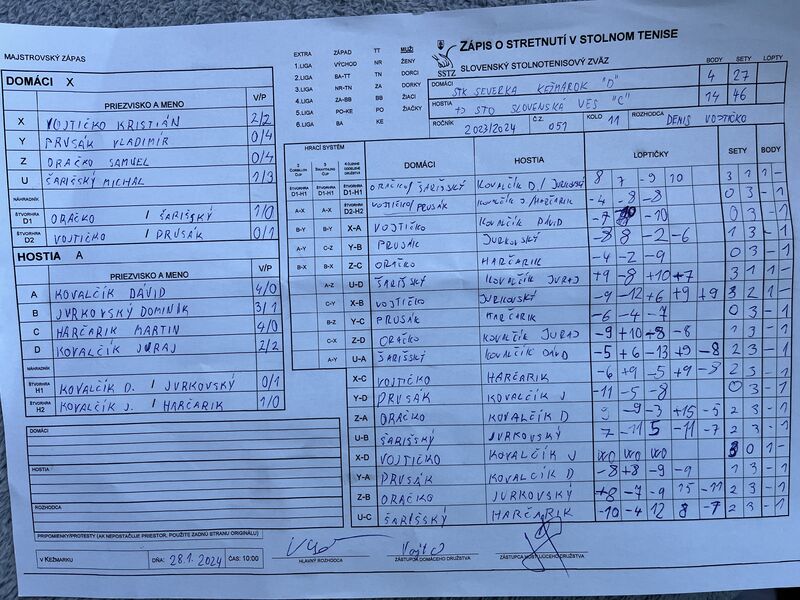 MAJSTROVSKÝ ZÁPAS
EXTRA ZÁPAD TT MUŽI
1.LIGA VÝCHOD NR ŽENY
2.LIGA BA-TT TN DORCI
3.LIGA NR-TN ZA DORKY
4.LIGA ZA-BB BB ŽIACI
5.LIGA PO-KE PO ŽIAČKY
6.LIGA BA KE
SSTZ
ZÁPIS O STRETNUTÍ V STOLNOM TENISE
SLOVENSKÝ STOLNOTENISOVÝ ZVÄZ
BODY SETY LOPTY
DOMÁCI STK SEVERKA KEŽMAROK "D" 4 27
HOSTIA STO SLOVENSKÁ VES "C" 14 46
ROČNÍK 2023/2024 Č.Z. 051 KOLO 11 ROZHODCA DENIS VOJTIČKO
DOMÁCI X
PRIEZVISKO A MENO V/P
X VOJTIČKO KRISTIÁN 2/2
Y PRUSÁK VLADIMÍR 0/4
Z ORAČKO SAMUEL 0/4
U ŠARIŠSKÝ MICHAL 1/3
NÁHRADNÍK
ŠTVORHRA D1 ORAČKO / ŠARIŠSKÝ 1/0
ŠTVORHRA D2 VOJTIČKO / PRUSÁK 0/1
HOSTIA A
PRIEZVISKO A MENO V/P
A KOVALČÍK DÁVID 4/0
B JURKOVSKÝ DOMINIK 3/1
C HARČARIK MARTIN 4/0
D KOVALČÍK JURAJ 2/2
NÁHRADNÍK
ŠTVORHRA H1 KOVALČÍK D. / JURKOVSKÝ 0/1
ŠTVORHRA H2 KOVALČÍK J. / HARČARIK 1/0
DOMÁCI
HOSTIA
ROZHODCA
PRIPOMIENKY/PROTESTY (AK NEPOSTAČUJE PRIESTOR, POUŽITE ZADNÚ STRANU ORIGINÁLU)
HRACÍ SYSTÉM
DOMÁCI HOSTIA LOPTIČKY SETY BODY
D1-H1 D1-H1 D1-H1 ORAČKO/ŠARIŠSKÝ KOVALČÍK D/JURKOVSKÝ 8 7 -9 10 3 1 1 -
A-X A-X D2-H2 VOJTIČKO/PRUSÁK KOVALČÍK J/HARČARIK -4 -8 -8 0 3 - 1
B-Y B-Y X-A VOJTIČKO KOVALČÍK DÁVID -7 -10 0 3 - 1
A-Y C-Z Y-B PRUSÁK JURKOVSKÝ -8 8 -2 -6 1 3 - 1
B-X B-X Z-C ORAČKO HARČARIK -4 -2 -9 0 3 - 1
A-Z U-D ŠARIŠSKÝ KOVALČÍK JURAJ +9 -8 +10 +7 3 1 1 -
C-Y X-B VOJTIČKO JURKOVSKÝ -9 -12 +6 +9 +9 3 2 1 -
B-Z Y-C PRUSÁK HARČARIK -6 -4 -7 0 3 - 1
C-X Z-D ORAČKO KOVALČÍK JURAJ -9 +10 -8 -8 1 3 - 1
A-Y U-A ŠARIŠSKÝ KOVALČÍK DÁVID -5 +6 -13 +9 -8 2 3 - 1
X-C VOJTIČKO HARČARIK -6 +9 -5 +9 -8 2 3 - 1
Y-D PRUSÁK KOVALČÍK J -11 -5 -8 0 3 - 1
Z-A ORAČKO KOVALČÍK D 9 -9 -3 +15 -5 2 3 - 1
U-B ŠARIŠSKÝ JURKOVSKÝ 7 -11 5 -11 -7 2 3 - 1
X-D VOJTIČKO KOVALČÍK J WO WO WO 3 0 1 -
Y-A PRUSÁK KOVALČÍK D -8 +8 -9 -9 1 3 - 1
Z-B ORAČKO JURKOVSKÝ +8 -7 -9 15 -11 2 3 - 1
U-C ŠARIŠSKÝ HARČARIK -10 -4 12 8 -7 2 3 - 1
V KEŽMARKU DŇA: 28.1.2024 ČAS: 10:00
HLAVNÝ ROZHODCA
ZÁSTUPCA DOMÁCEHO DRUŽSTVA
ZÁSTUPCA HOSŤUJÚCEHO DRUŽSTVA